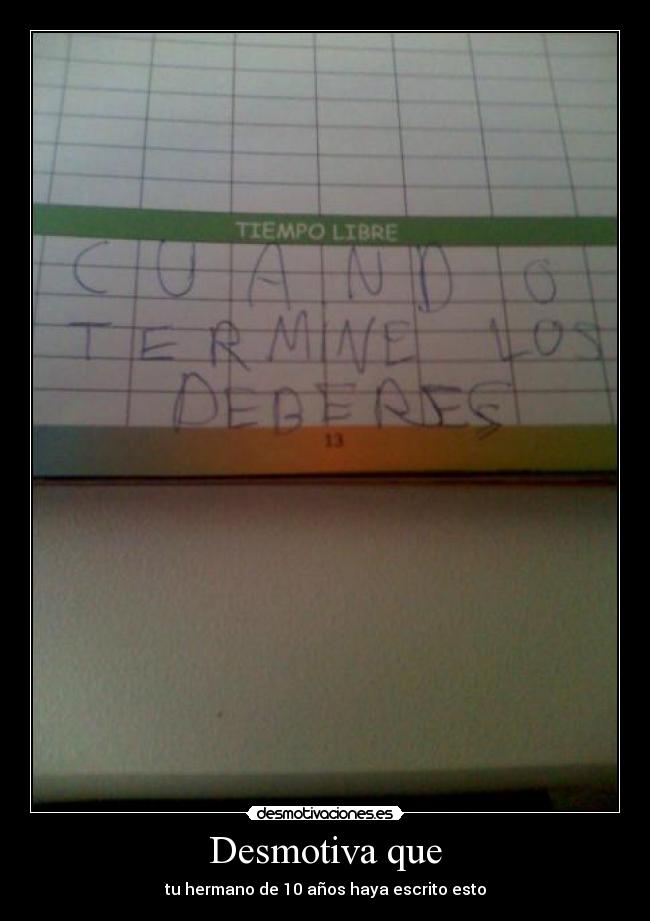 TIEMPO LIBRE
CUANDO
TERMINE LOS
DEBERES
13
desmotivaciones.es
Desmotiva que
tu hermano de 10 años haya escrito esto